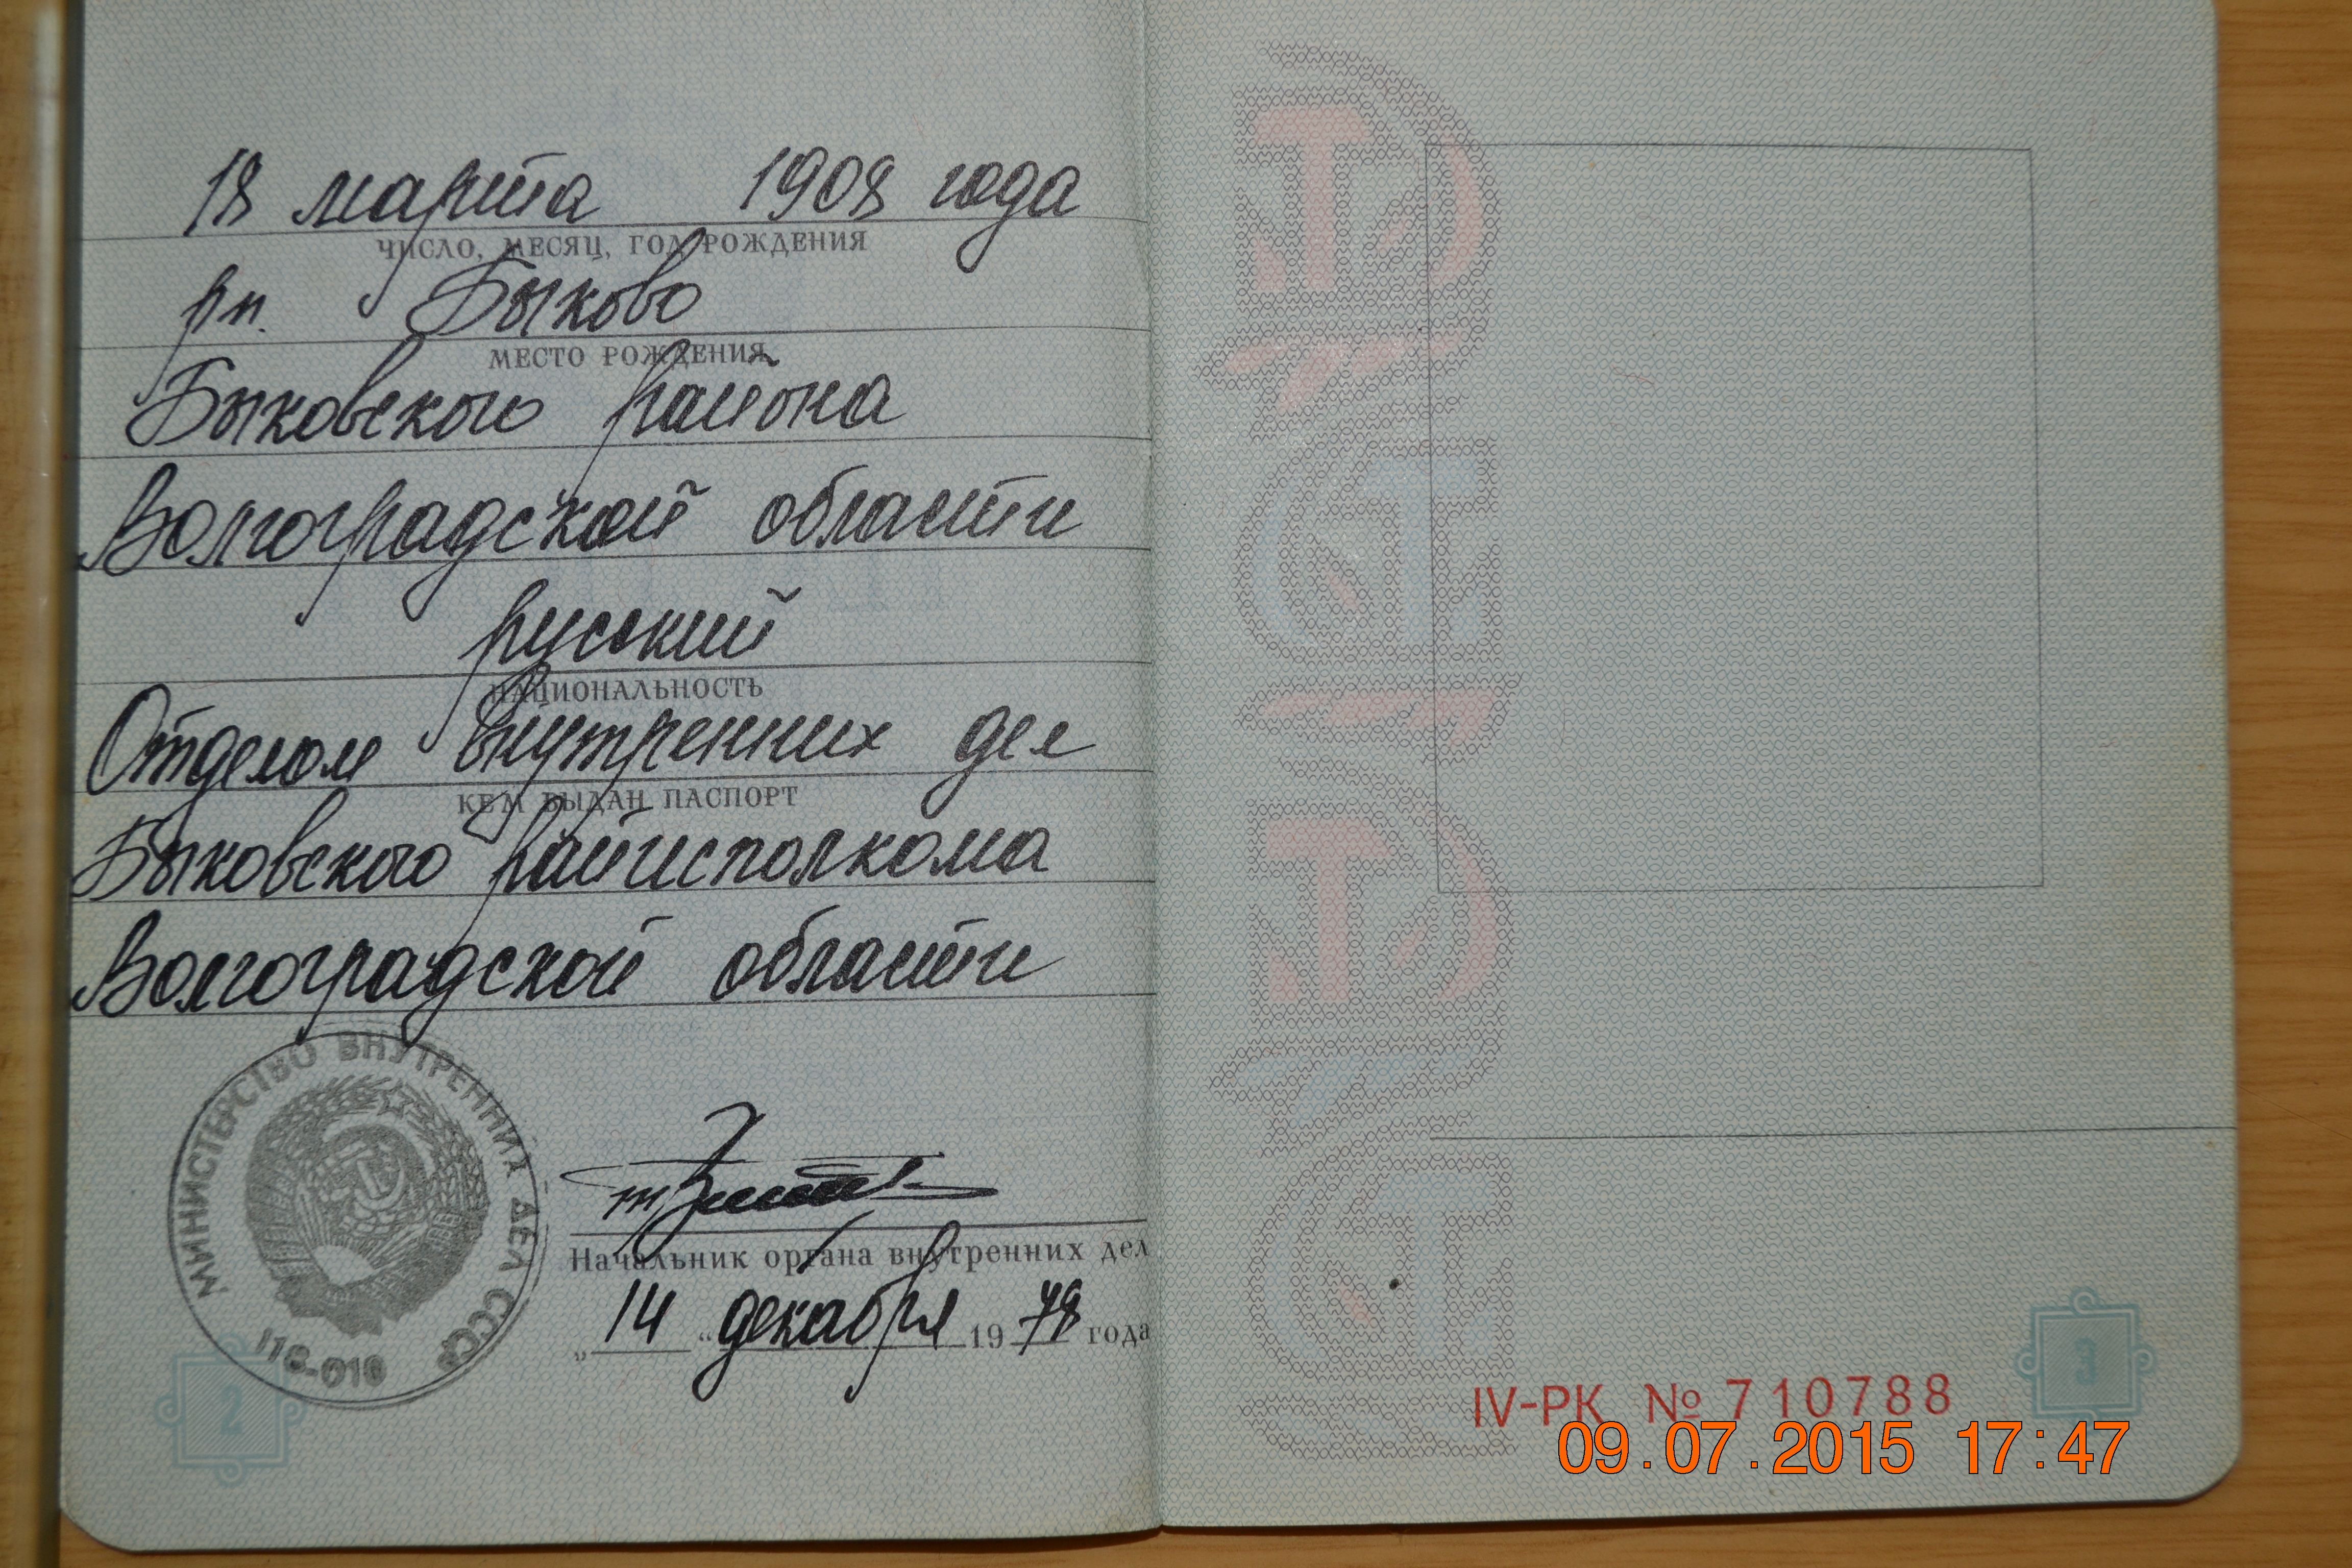 18 марта 1908 года
ЧИСЛО, МЕСЯЦ, ГОД РОЖДЕНИЯ
рп. Быково
МЕСТО РОЖДЕНИЯ
Быковского района
Волгоградской области
русский
НАЦИОНАЛЬНОСТЬ
Отделом внутренних дел
КЕМ ВЫДАН ПАСПОРТ
Быковского райисполкома
Волгоградской области
МИНИСТЕРСТВО ВНУТРЕННИХ ДЕЛ СССР
Начальник органа внутренних дел
„14“ декабря 1978 года
2
IV-РК № 710788
3
09.07.2015 17:47